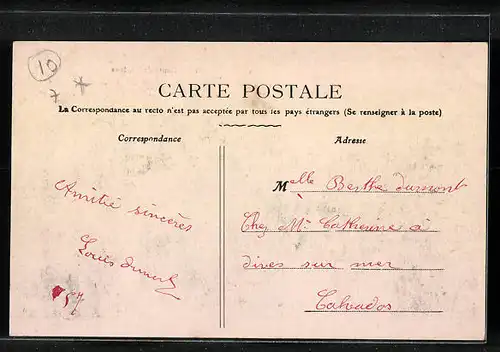 10
CARTE POSTALE
La Correspondance au recto n'est pas acceptée par tous les pays étrangers (Se renseigner à la poste)
Correspondance
Adresse
Amitié sincères
Louis Dumont
Melle Berthe dumont
Chez Mr Catherine à
dives sur mer
Calvados